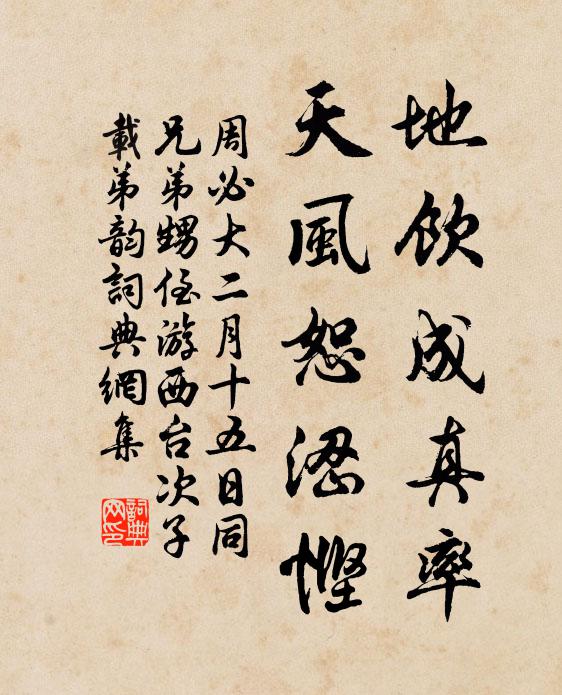 地飲成真率
天風恕涩慳
周必大二月十五日同
兄弟甥侄游西台次子
載弟韵詞典網集
詞典
网印